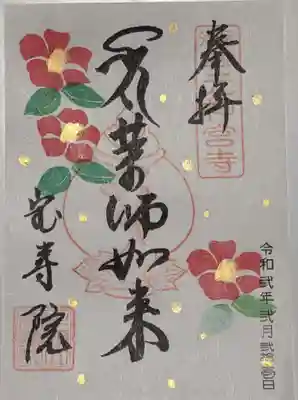 奉拝
薬師如来
宝寿院
令和弐年弐月弐拾壱日